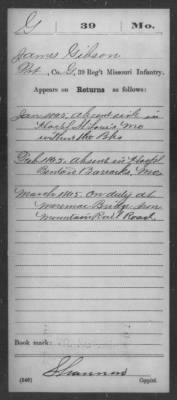 G 39 Mo.
James Gibson
Pvt, Co. G, 39 Reg't Missouri Infantry.
Appears on Returns as follows:
Jan 1865, absent sick in
Hosp'l St Louis, Mo
Feb 1865. absent in Hosp'l
Benton Barracks, Mo
March 1865. On duty at
Meremac Bridge Iron
Mountain Rail Road.
Book mark:
Shannon
(546) Copyist.